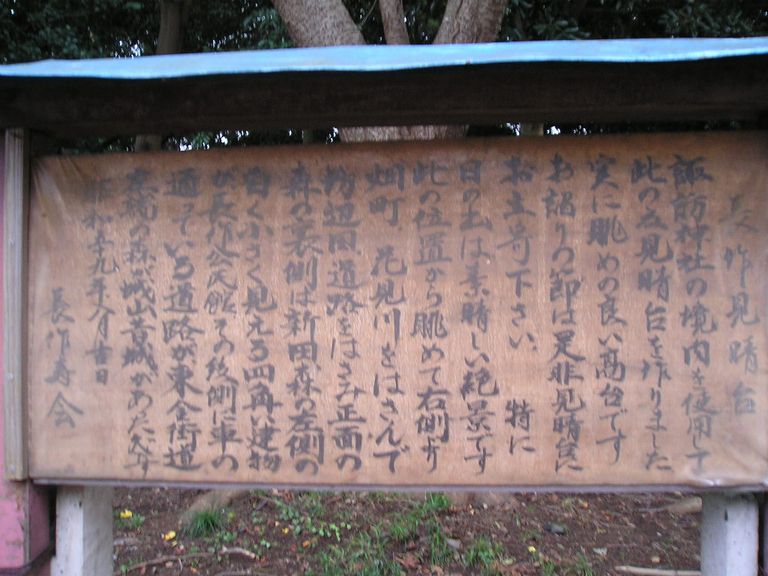 長作見晴台
諏訪神社の境内を使用して
此の度見晴台を作りました
実に眺めの良い高台です
お詣りの節は是非見晴台に
お立寄下さい。特に
日の出は素晴しい絶景です
此の位置から眺めて右側より
畑町、花見川をはさんで
辺田、道路をはさみ正面の
森の裏側は新田、森の左側の
白く小さく見える四角い建物
が長作公民館その後側に車の
通っている道路が東金街道
左端の森が城山昔城があった処です
昭和五十九年八月吉日
長作寿会